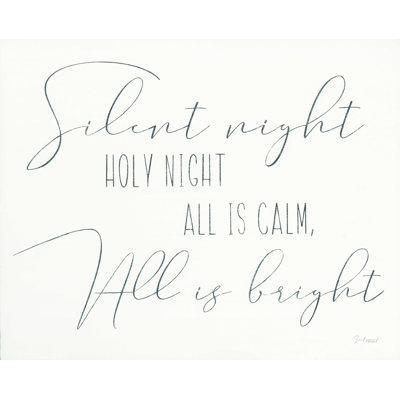 Silent night
HOLY NIGHT
ALL IS CALM,
All is bright